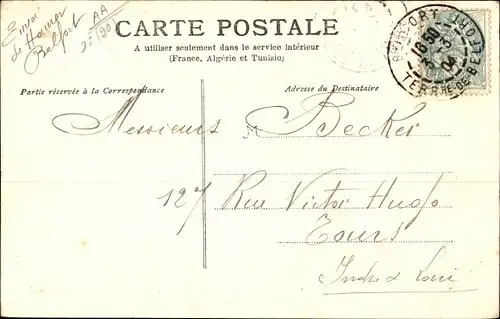 CARTE POSTALE
A utiliser seulement dans le service intérieur
(France, Algérie et Tunisie)
Partie réservée à la Correspondance
Adresse du Destinataire
Belfort
BELFORT
16 50
TERRE DE BELFORT
Messieurs Becker
M
127 Rue Victor Hugo
Tours
Indre & Loire